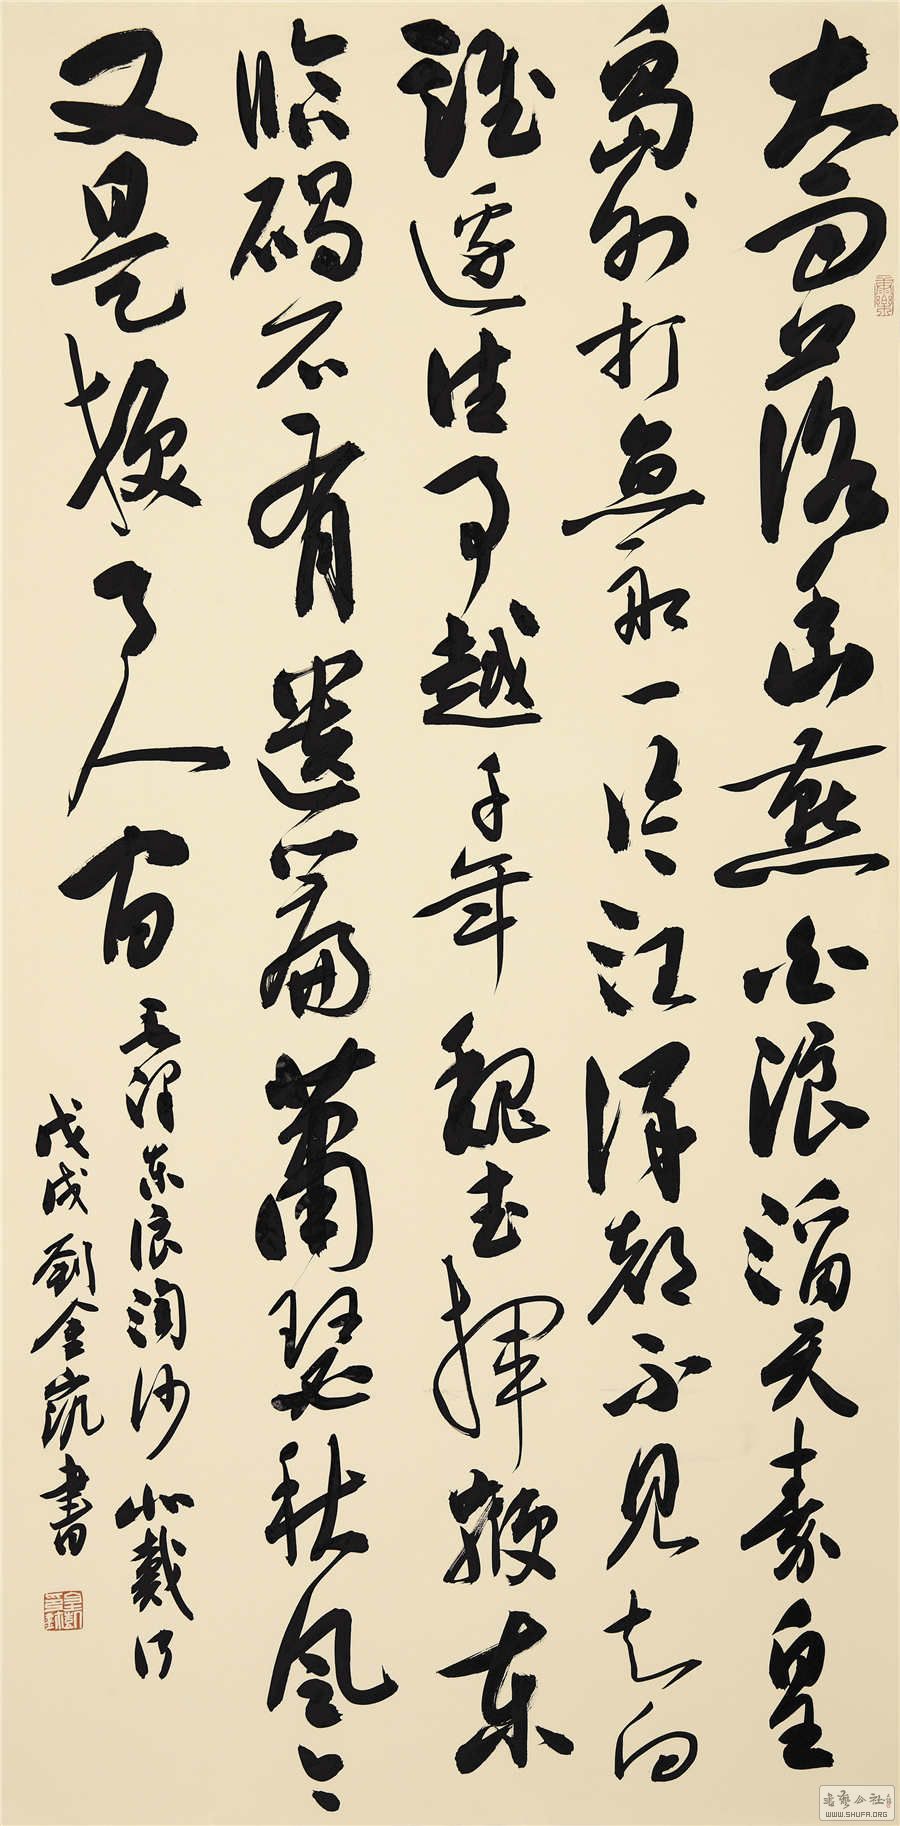 大雨落幽燕白浪滔天秦皇
島外打魚船一片汪洋都不見知向
誰邊往事越千年魏武揮鞭東
臨碣石有遺篇蕭瑟秋風今
又是換了人間
毛澤東浪淘沙北戴河
戊戌劉金凱書
書藝公社
WWW.SHUFA.ORG